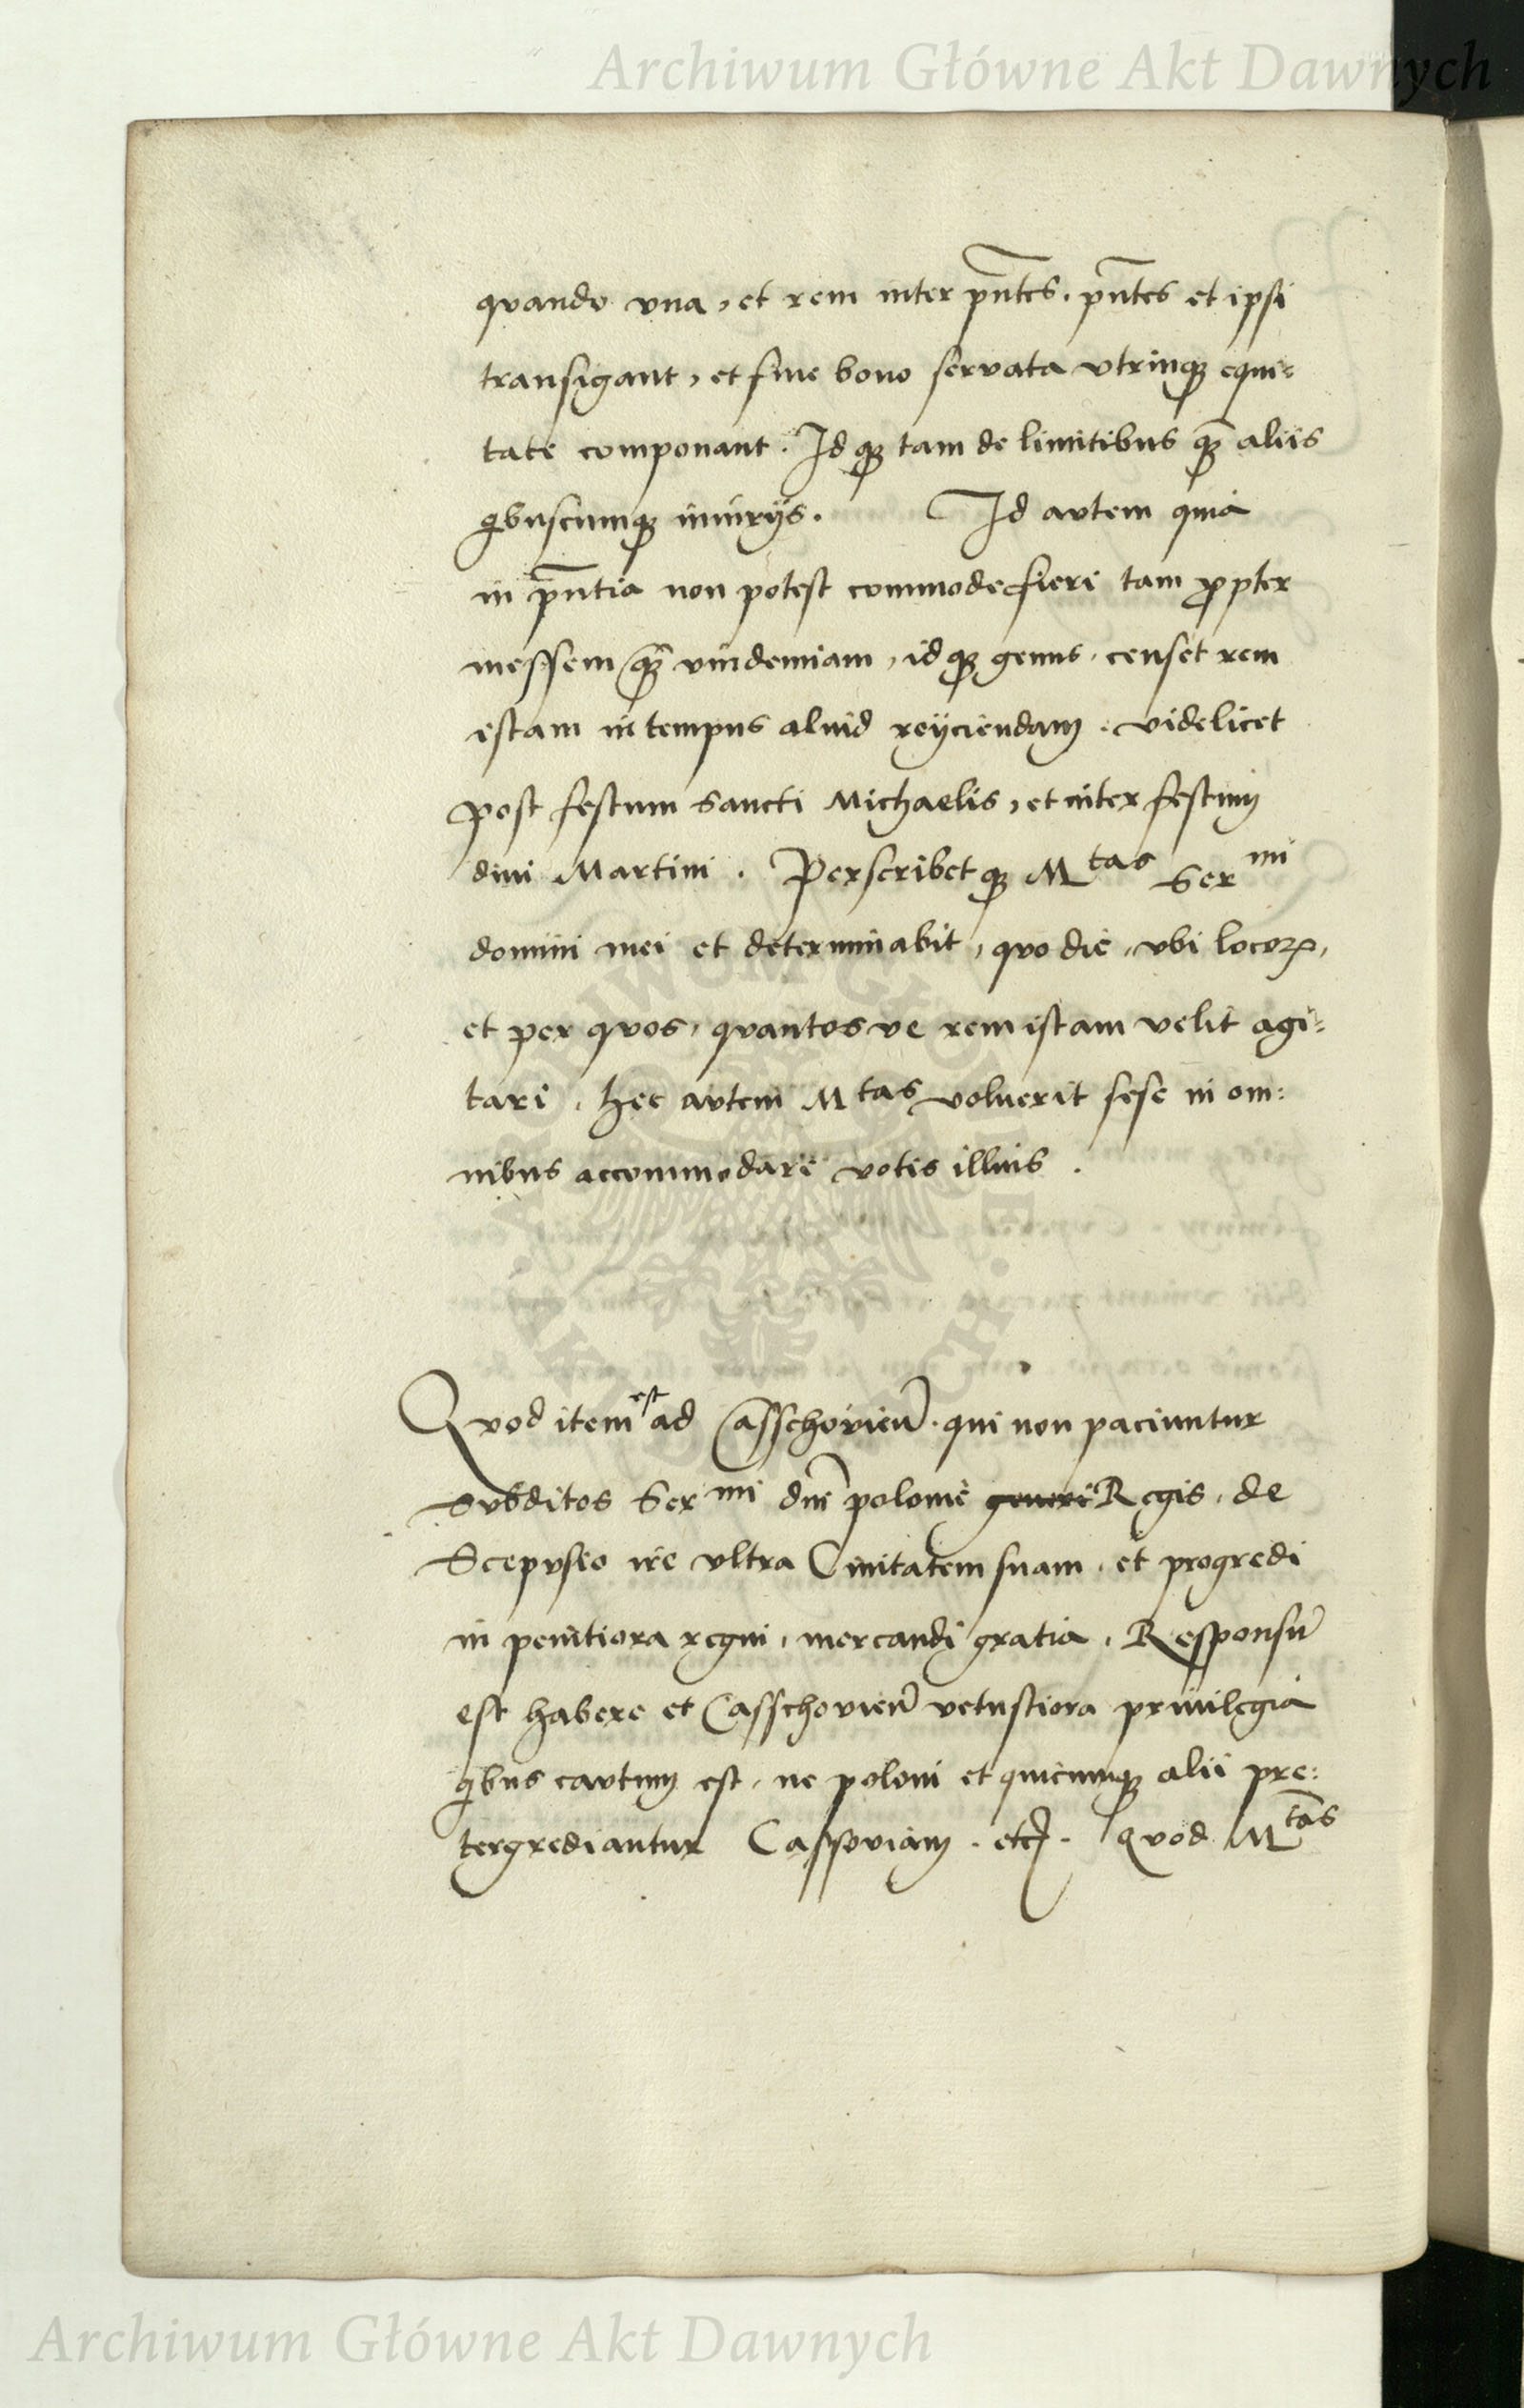 Archiwum Główne Akt Dawnych
quando vna, et rem inter pn̄tes. pn̄tes et ipsi
transigant, et fine bono servata vtrinqꝫ equi=
tate componant. Idqꝫ tam de limitibus qꝫ̄ aliis
qbuscumqꝫ iniurijs. Id avtem quia
in pn̄tia non potest commode fieri tam ꝓpter
messem qꝫ̄ vindemiam, idqꝫ genus. censet rem
istam in tempus aliud reijciendam. videlicet
post festum sancti Michaelis, et inter festum
diui Martini. Perscribetqꝫ Mtas Sermi
domini mei et determinabit, quo die, vbi locoꝝ,
et per quos, quantosve rem istam velit agi=
tari. hec avtem Mtas voluerit sese in om:
nibus accommodare votis illius.
Quod item est ad Casschovien̄. qui non paciuntur
Subditos Sermi dnī polonie generi Regis, de
Scepusio ire vltra Ciuitatem suam. et progredi
in penitiora regni, mercandi gratia. Responsū
est habere et Casschovien̄ vetustiora priuilegia
qbus cavtum est, ne poloni et quicumqꝫ alii pre:
tergrediantur Cassoviam. etc. Quod Mtas
Archiwum Główne Akt Dawnych